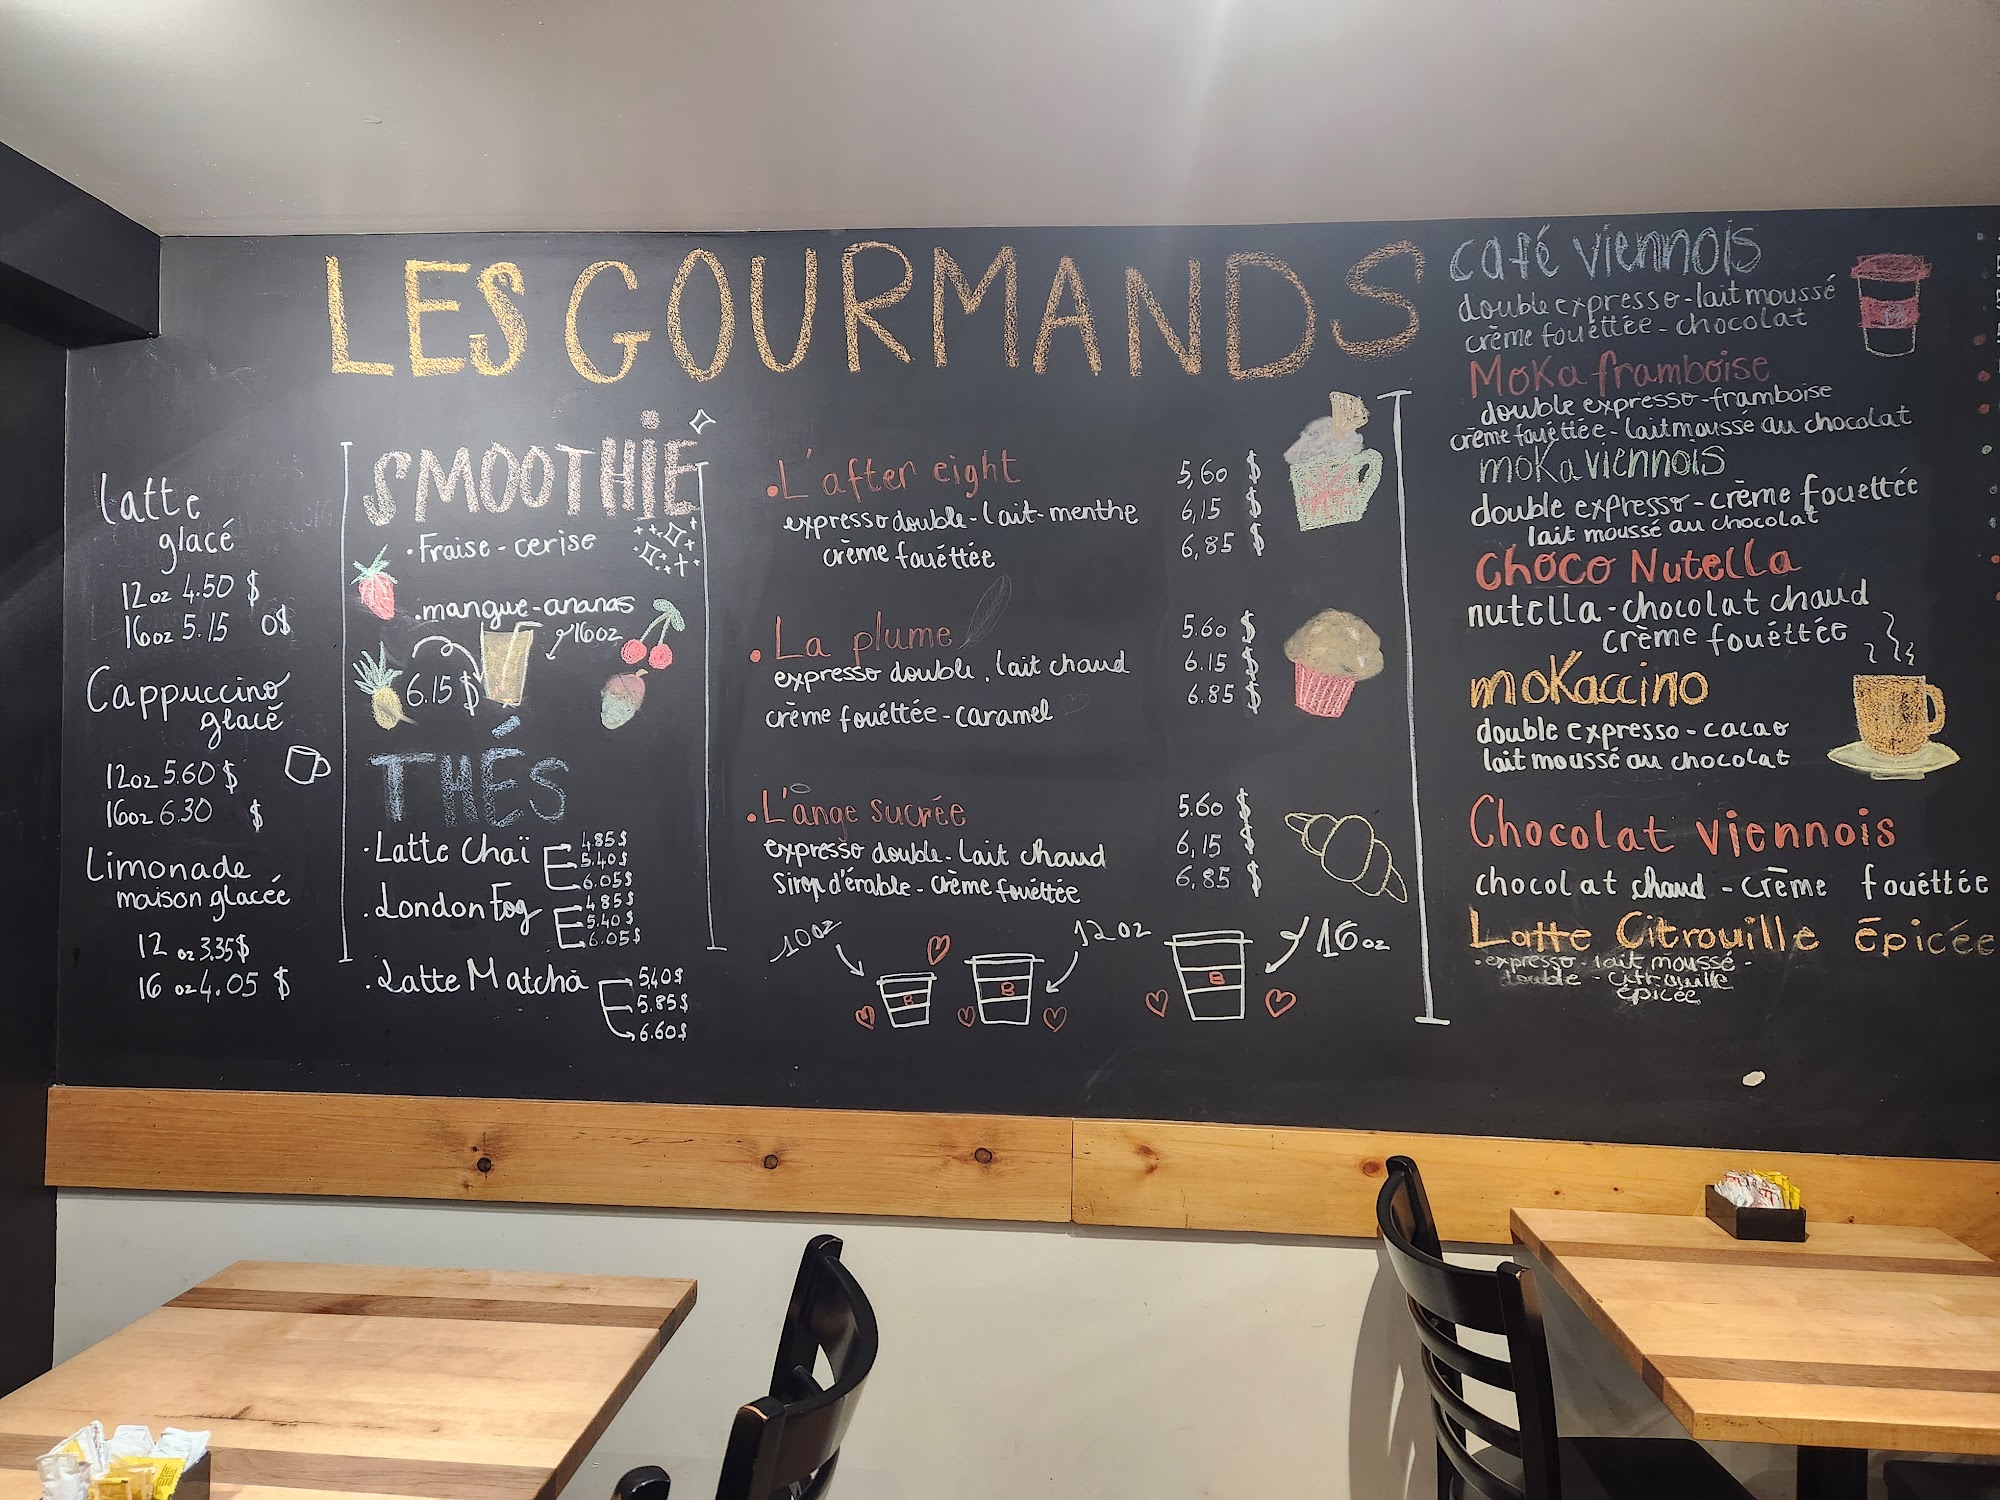 LES GOURMANDS
latte
glacé
12oz 4.50 $
16oz 5.15 0$
Cappuccino
glacé
12oz 5.60 $
16oz 6.30 $
Limonade
maison glacée
12 oz 3.35$
16 oz 4.05 $
SMOOTHIE
• Fraise - cerise
• mangue-ananas
16oz
6.15 $
THÉS
• Latte Chaï
4.85$
5.40$
6.05$
• London Fog
4.85$
5.40$
6.05$
• Latte Matcha
5.40$
5.85$
6.60$
• L'after eight
5,60 $
expresso double - lait - menthe
6,15 $
crème fouéttée
6,85 $
• La plume
5.60 $
expresso double . lait chaud
6.15 $
crème fouéttée - caramel
6.85 $
• L'ange sucrée
5.60 $
expresso double - Lait chaud
6,15 $
sirop d'érable - crème fouéttée
6,85 $
10oz
12oz
16oz
B
B
B
café viennois
double expresso - lait moussé
crème fouéttée - chocolat
Moka framboise
double expresso - framboise
crème fouéttée - lait moussé au chocolat
moka viennois
double expresso - crème fouettée
lait moussé au chocolat
Choco Nutella
nutella - chocolat chaud
crème fouéttée
mokaccino
double expresso - cacao
lait moussé au chocolat
Chocolat viennois
chocolat chaud - crème fouéttée
Latte Citrouille épicée
• expresso - lait moussé -
double - citrouille
épicée